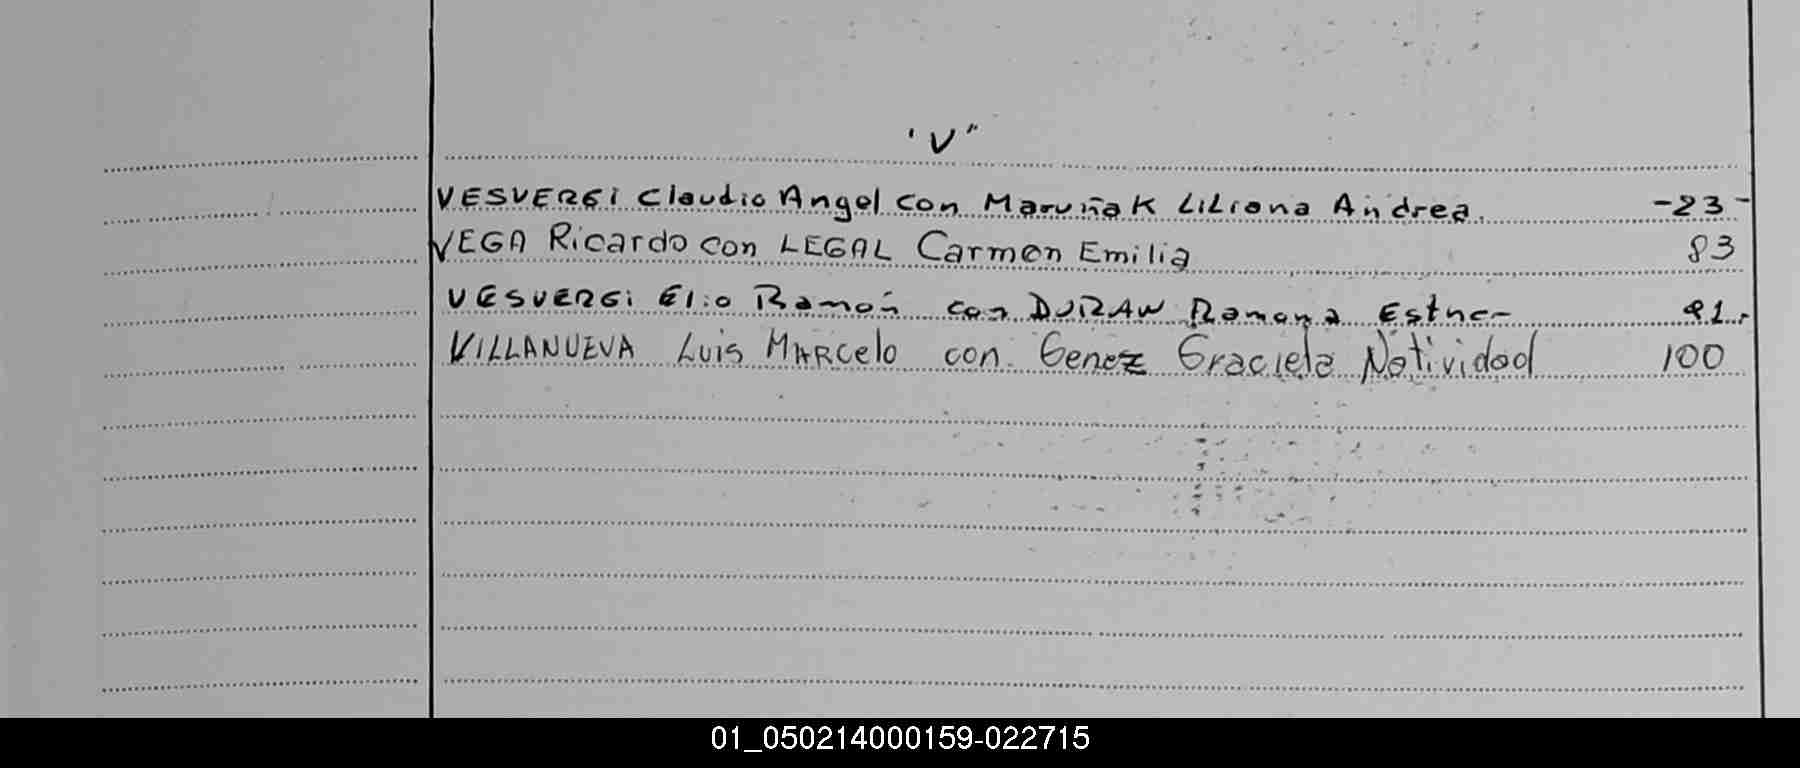 "V"
VESVERGi Claudio Angel con Maruñak Liliana Andrea. -23-
VEGA Ricardo con LEGAL Carmen Emilia 83
VESVERGi Elio Ramón con DURAN Ramona Esther 91.
VILLANUEVA Luis MARCelo con Genez Graciela Natividad 100
01_050214000159-022715